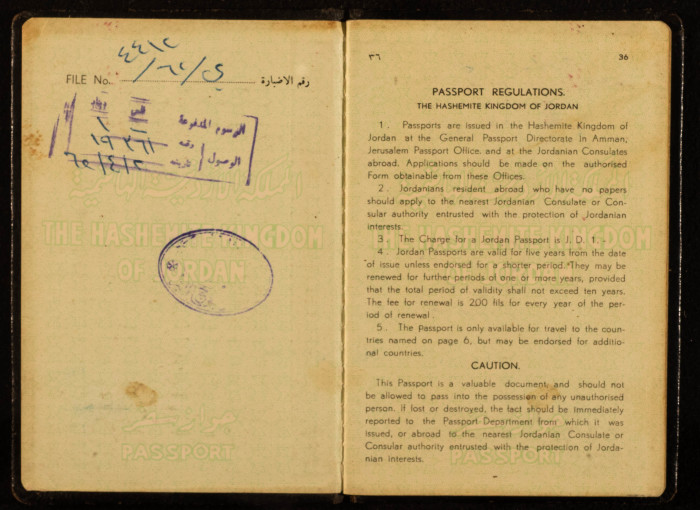 ٤٤١٢
/٦٢/ي
FILE No. رقم الاضبارة
دينار
الرسوم المدفوعة
رقمه
الوصول
تاريخه ٦٥/٤/٢
المملكة الأردنية الهاشمية
THE HASHEMITE KINGDOM
OF JORDAN
جواز سفر
PASSPORT
٣٦ 36
PASSPORT REGULATIONS.
THE HASHEMITE KINGDOM OF JORDAN
1. Passports are issued in the Hashemite Kingdom of
Jordan at the General Passport Directorate in Amman,
Jerusalem Passport Office, and at the Jordanian Consulates
abroad. Applications should be made on the authorised
Form obtainable from these Offices.
2. Jordanians resident abroad who have no papers
should apply to the nearest Jordanian Consulate or Con-
sular authority entrusted with the protection of Jordanian
interests.
3. The Charge for a Jordan Passport is J. D. 1.-
4. Jordan Passports are valid for five years from the date
of issue unless endorsed for a shorter period. They may be
renewed for further periods of one or more years, provided
that the total period of validity shall not exceed ten years.
The fee for renewal is 200 fils for every year of the per-
iod of renewal.
5. The passport is only available for travel to the coun-
tries named on page 6, but may be endorsed for additio-
nal countries.
CAUTION.
This Passport is a valuable document and should not
be allowed to pass into the possession of any unauthorised
person. If lost or destroyed, the fact should be immediately
reported to the Passport Department from which it was
issued, or abroad to the nearest Jordanian Consulate or
Consular authority entrusted with the protection of Jorda-
nian interests.
THE HASHEMITE KINGDOM
OF JORDAN
PASSPORT